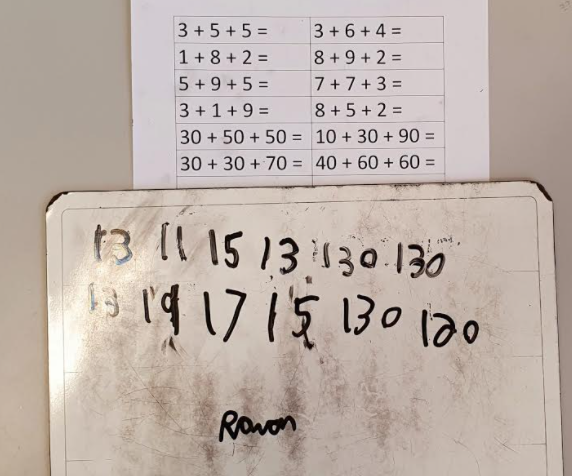 3 + 5 + 5 = 3 + 6 + 4 =
1 + 8 + 2 = 8 + 9 + 2 =
5 + 9 + 5 = 7 + 7 + 3 =
3 + 1 + 9 = 8 + 5 + 2 =
30 + 50 + 50 = 10 + 30 + 90 =
30 + 30 + 70 = 40 + 60 + 60 =
13 11 15 13 130 130
13 19 17 15 130 120
Rowan